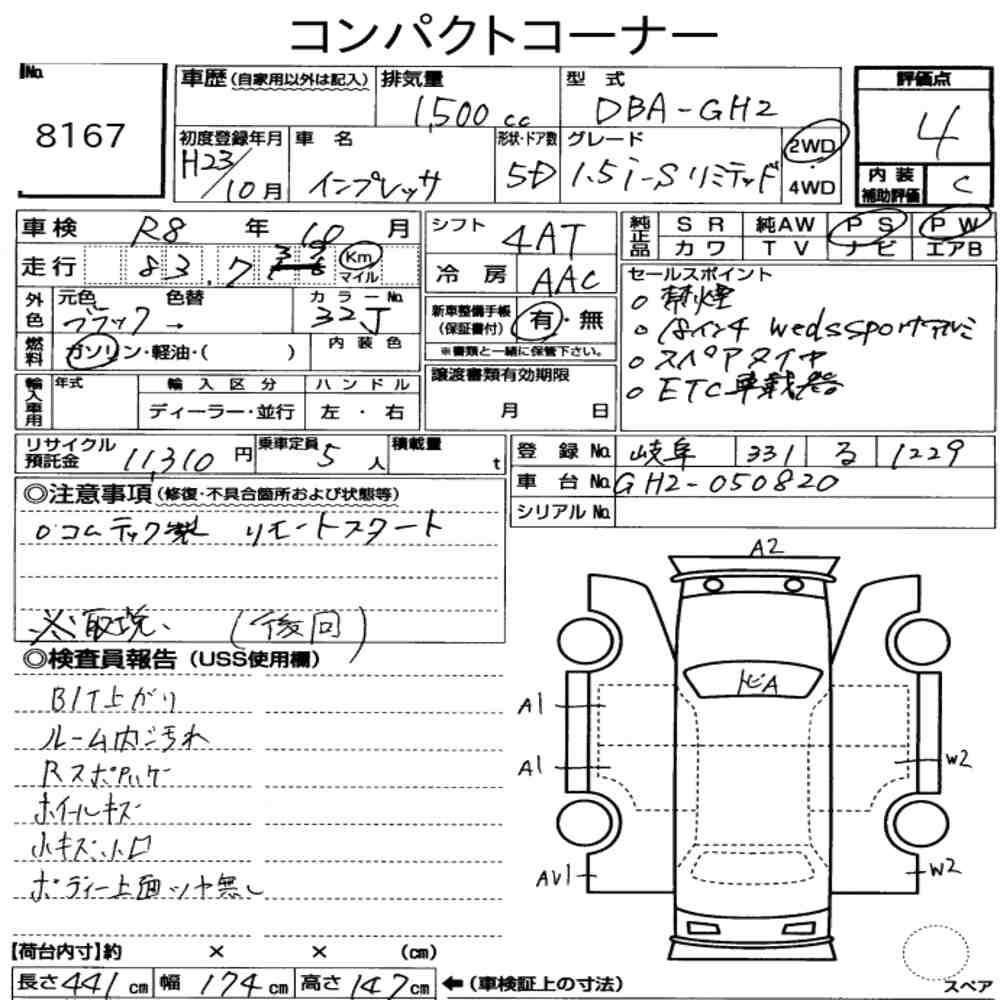 コンパクトコーナー
No. 8167
車歴(自家用以外は記入)
排気量 1,500 cc
型式 DBA-GH2
評価点 4
初度登録年月 H23/10月
車名 インプレッサ
形状・ドア数 5D
グレード 1.5i-Sリミテッド
2WD・4WD
内装補助評価 C
車検 R8 年 10 月
走行 83,7 Km マイル
シフト 4AT
冷房 AAC
純正品 SR 純AW PS PW
カワ TV ナビ エアB
外色 元色 ブラック 色替 →
カラーNo. 32J
燃料 ガソリン・軽油・( )
内装色
新車整備手帳(保証書付) 有・無
※書類と一緒に保管下さい。
セールスポイント
○禁煙
○18インチ wedssportアルミ
○スペアタイヤ
○ETC車載器
輸入車用 年式 輸入区分 ハンドル
ディーラー・並行 左・右
譲渡書類有効期限
月 日
リサイクル預託金 11,310 円
乗車定員 5 人
積載量 t
登録No. 岐阜 331 る 1229
車台No. GH2-050820
シリアルNo.
◎注意事項(修復・不具合箇所および状態等)
○コムテック製 リモートスタート
※取説、(後回)
◎検査員報告(USS使用欄)
B/T上がり
ルーム内汚れ
Rスポ
ホイールキズ
小キズ、凹
ボディー上面ツヤ無し
A2
トビA
A1
A1
W2
AV1
W2
スペア
【荷台内寸】約 × × (cm)
長さ 441 cm 幅 174 cm 高さ 147 cm ←(車検証上の寸法)